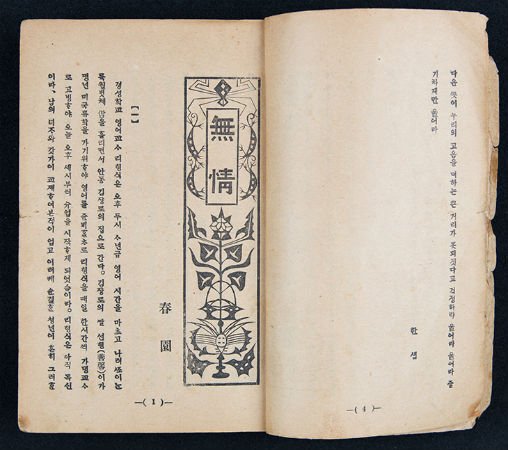 우리의
큰 거리가
울어라 울어라
울어라
한 샘
—( 4 )—
無情
春園
【一】
경성학교 영어교사 리형식은 오후 두시 사년급 영어 시간을 마초고 나려쪼이는
륙월볏헤 땀을 흘리면서 안동 김장로의 집으로 간다。 김장로의 딸 선형(善馨)이가
명년 미국류학을 가기위하야 영어를 준비할차로 리형식을 매일 한시간씩 가뎡교사
로 고빙하야 오늘 오후 세시부터 수업을 시작하게 되엿슴이라。 리형식은 아직 독신
이라、 남의 녀자와 갓가이 교제하여본적이 업고 이러케 순결한 청년이 흔히 그러한
—( 1 )—